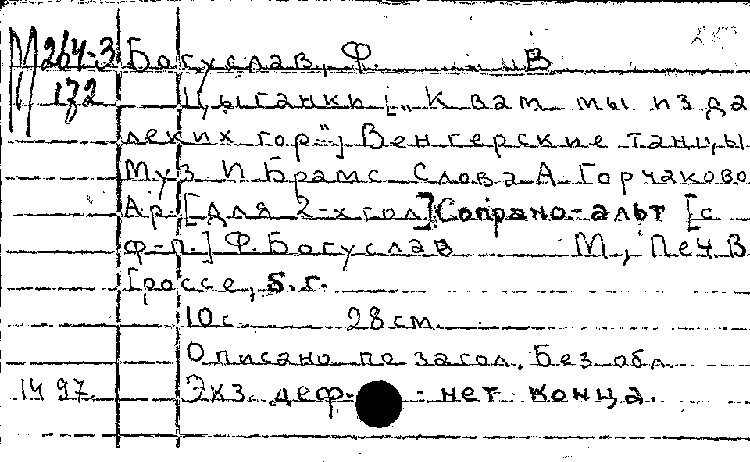 М 264-3 Богуслав, Ф. В
172 Цыганкы [„К вам мы из да
леких гор"] Венгерские танцы
Муз И Брамс Слова А Горчаково
Ар. [для 2-х гол] Сопрано-альт [с
ф-п.] Ф. Богуслав М., Печ В
Гроссе, б.г.
10 с. 28 см.
Описано по загол. Без обл
14 97. Экз. деф. - нет конца.